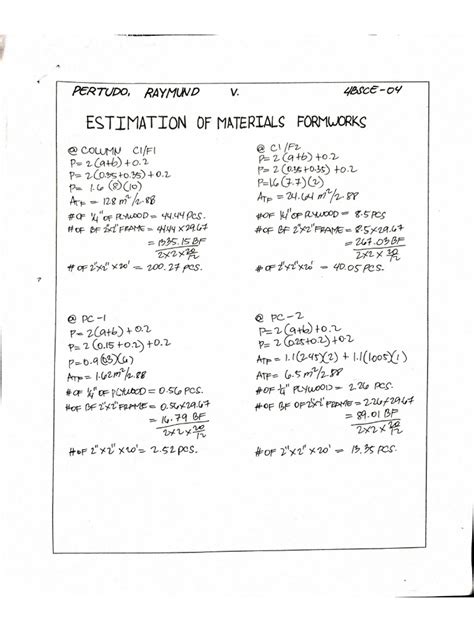 PERTUDO, RAYMUND V. 4BSCE-04
ESTIMATION OF MATERIALS FORMWORKS
@ COLUMN C1/F1
P= 2(a+b) + 0.2
P= 2(0.35+0.35) + 0.2
P= 1.6 (8)(10)
ATF = 128 m²/2.88
# OF 1/4" OF PLYWOOD = 44.44 PCS.
# OF BF 2"x2" FRAME = 44.44 X 29.67
= 1335.15 BF
2x2x 20/12
# OF 2"x2"x20' = 200.27 PCS.
@ C1/F2
P= 2(a+b) + 0.2
P= 2(0.35+0.35) + 0.2
P=1.6(7.7)(2)
ATF = 24.64 m²/2.88
# OF 1/4" OF PLYWOOD = 8.5 PCS
# OF BF 2"x2" FRAME = 8.5 X 29.67
= 267.03 BF
2x2x 20/12
# OF 2"x2"x20' = 40.05 PCS.
@ PC-1
P= 2(a+b) + 0.2
P= 2(0.15+0.2) + 0.2
P=0.9(0.3)(6)
ATF = 1.62 m²/2.88
# OF 1/4" OF PLYWOOD = 0.56 PCS.
# OF BF 2"x2" FRAME = 0.56X29.67
= 16.79 BF
2x2x 20/12
# OF 2"x2"x20' = 2.52 PCS.
@ PC-2
P= 2(a+b) + 0.2
P= 2(0.25+0.2) + 0.2
ATF = 1.1(2.45)(2) + 1.1(1.005)(1)
ATF = 6.5 m²/2.88
# OF 1/4" PLYWOOD = 2.26 PCS.
# OF BF OF 2"x2" FRAME = 2.26 X 29.67
= 89.01 BF
2x2x 20/12
# OF 2"x2"x20' = 13.35 PCS.